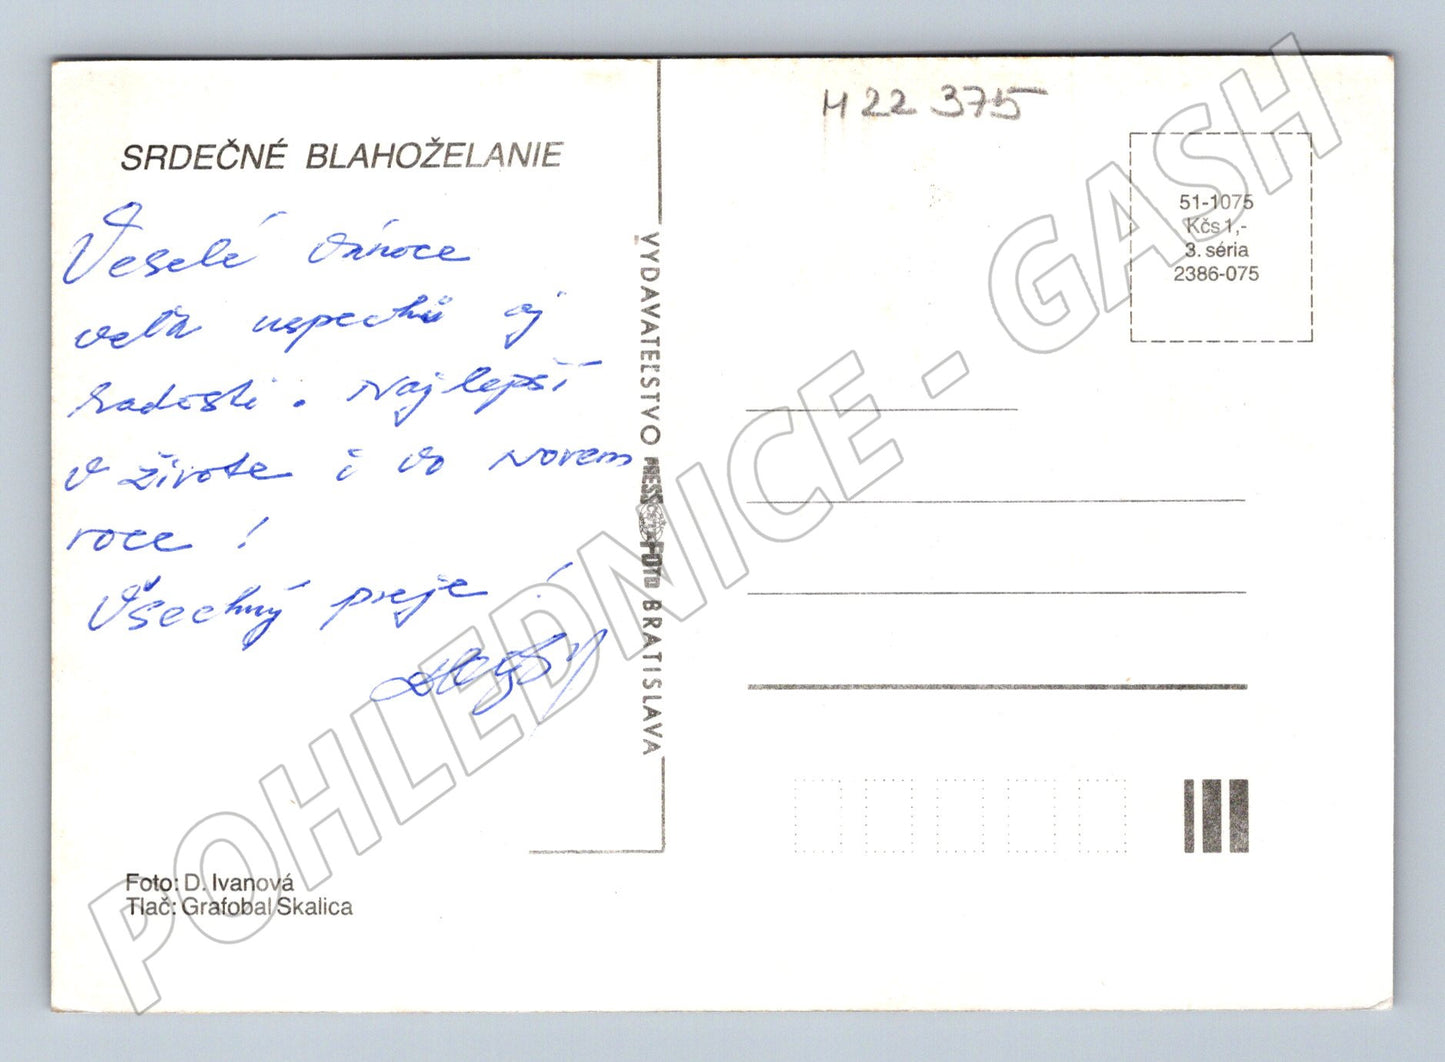 H 22 375
SRDEČNÉ BLAHOŽELANIE
Veselé vánoce
veľa uspechů aj
radosti. Najlepší
v živote i vo novem
roce!
Všechný preje!
VYDAVATEĽSTVO PRESSFOTO BRATISLAVA
51-1075
Kčs 1,-
3. séria
2386-075
Foto: D. Ivanová
Tlač: Grafobal Skalica
POHLEDNICE - GASH